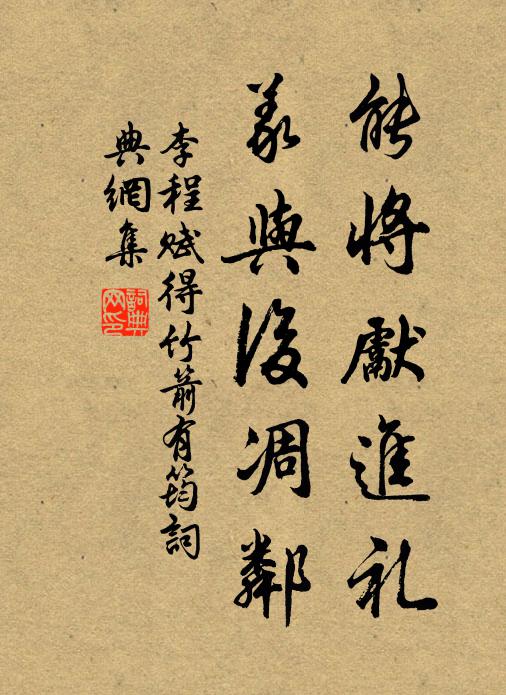 能將獻進礼
義與後凋鄰
李程賦得竹箭有筠詞
典網集
詞典網印